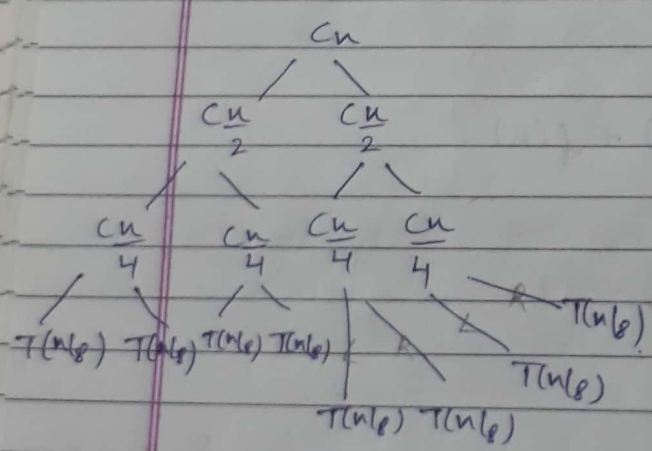 Cn
Cn/2 Cn/2
Cn/4 Cn/4 Cn/4 Cn/4
T(n/8) T(n/8) T(n/8) T(n/8) L R L R T(n/8)
T(n/8)
T(n/8) T(n/8)